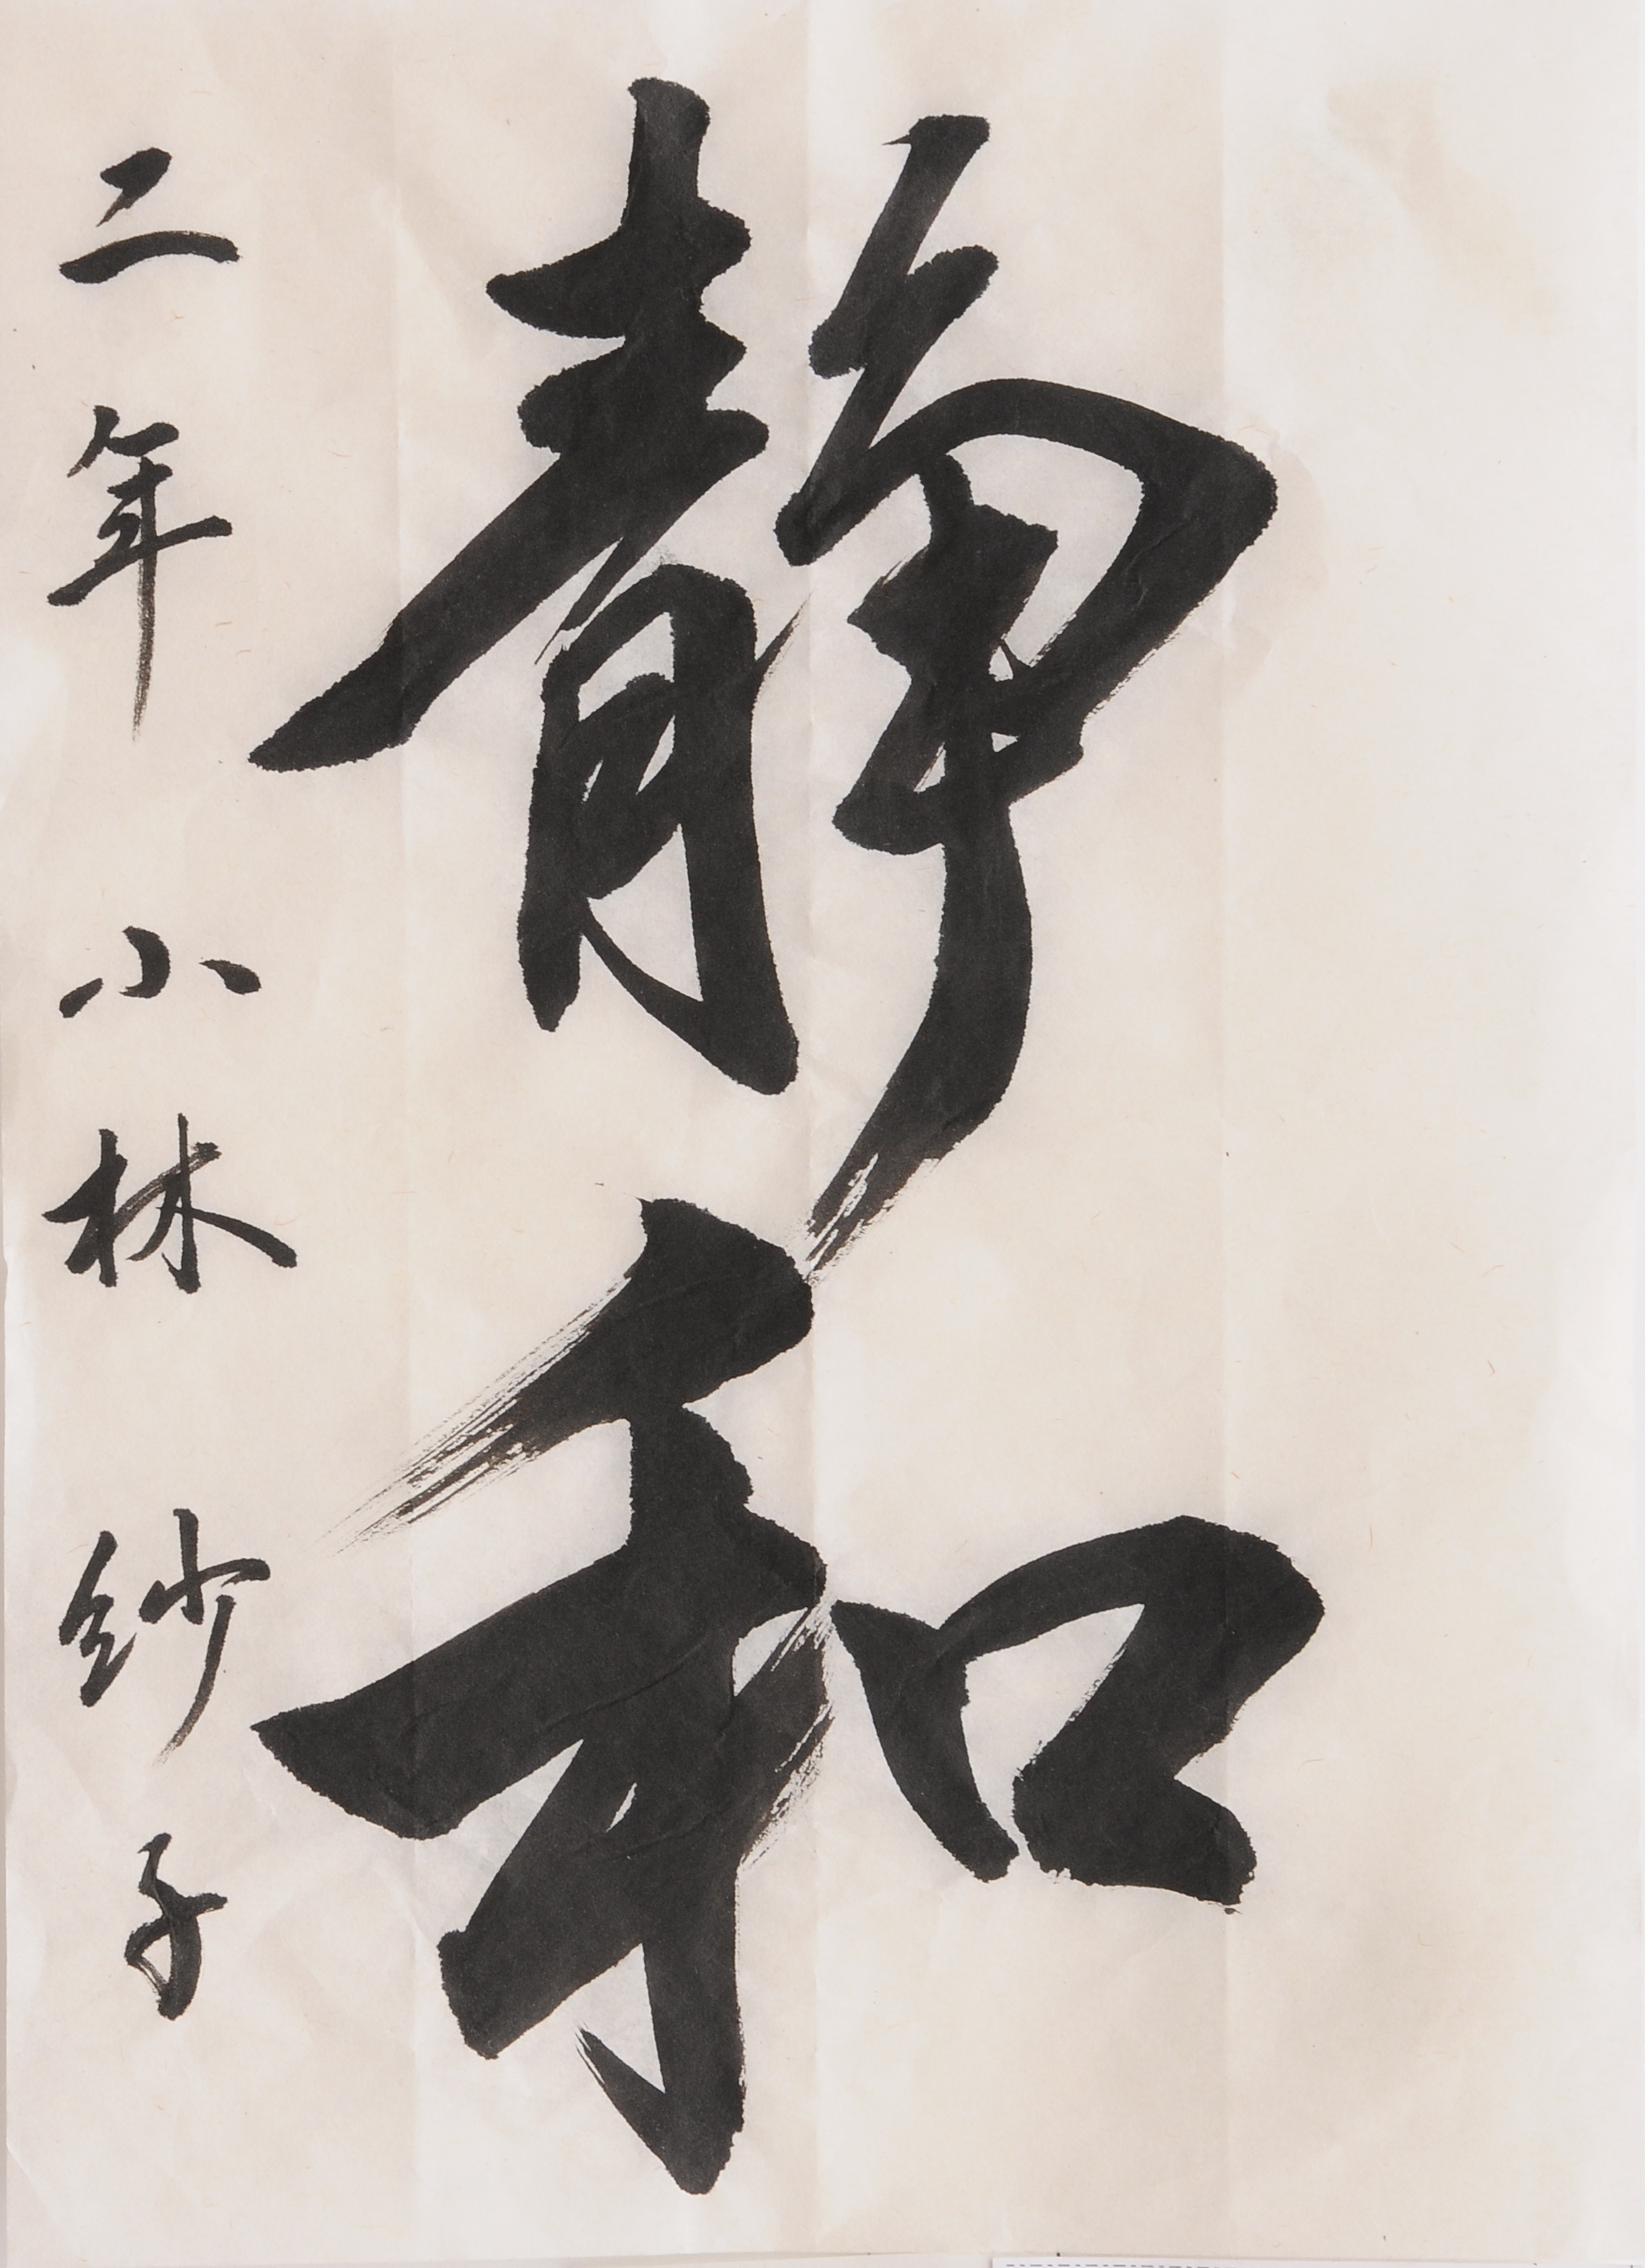 静和
二年 小林 紗子